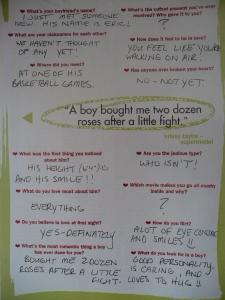 What's your boyfriend's name?
I JUST MET SOMEONE
NOW HIS NAME IS ERIC!
What are your nicknames for each other?
WE HAVEN'T THOUGHT
OF ANY YET!
Where did you meet?
AT ONE OF HIS
BASKETBALL GAMES.
What's the cutest present you've ever
received? Who gave it to you?
?
How does it feel to be in love?
YOU FEEL LIKE YOU'RE
WALKING ON AIR.
Has anyone ever broken your heart?
NO - NOT YET.
"A boy bought me two dozen
roses after a little fight."
supermodel
What was the first thing you
noticed about him?
HIS HEIGHT (6'4½")
AND HIS SMILE!!
What do you love most about him?
EVERYTHING
Do you believe in love at first sight?
YES-DEFINATELY
What's the most romantic thing a boy
has ever done for you?
BOUGHT ME 2 DOZEN
ROSES AFTER A LITTLE
FIGHT.
Are you the jealous type?
WHO ISN'T!
Which movie makes you go all mushy
inside and why?
?
How do you flirt?
ALOT OF EYE CONTACT
AND SMILES!!
What do you look for in a boy?
GOOD PERSONALITY,
IS CARING, AND
LOVES TO HUG!!